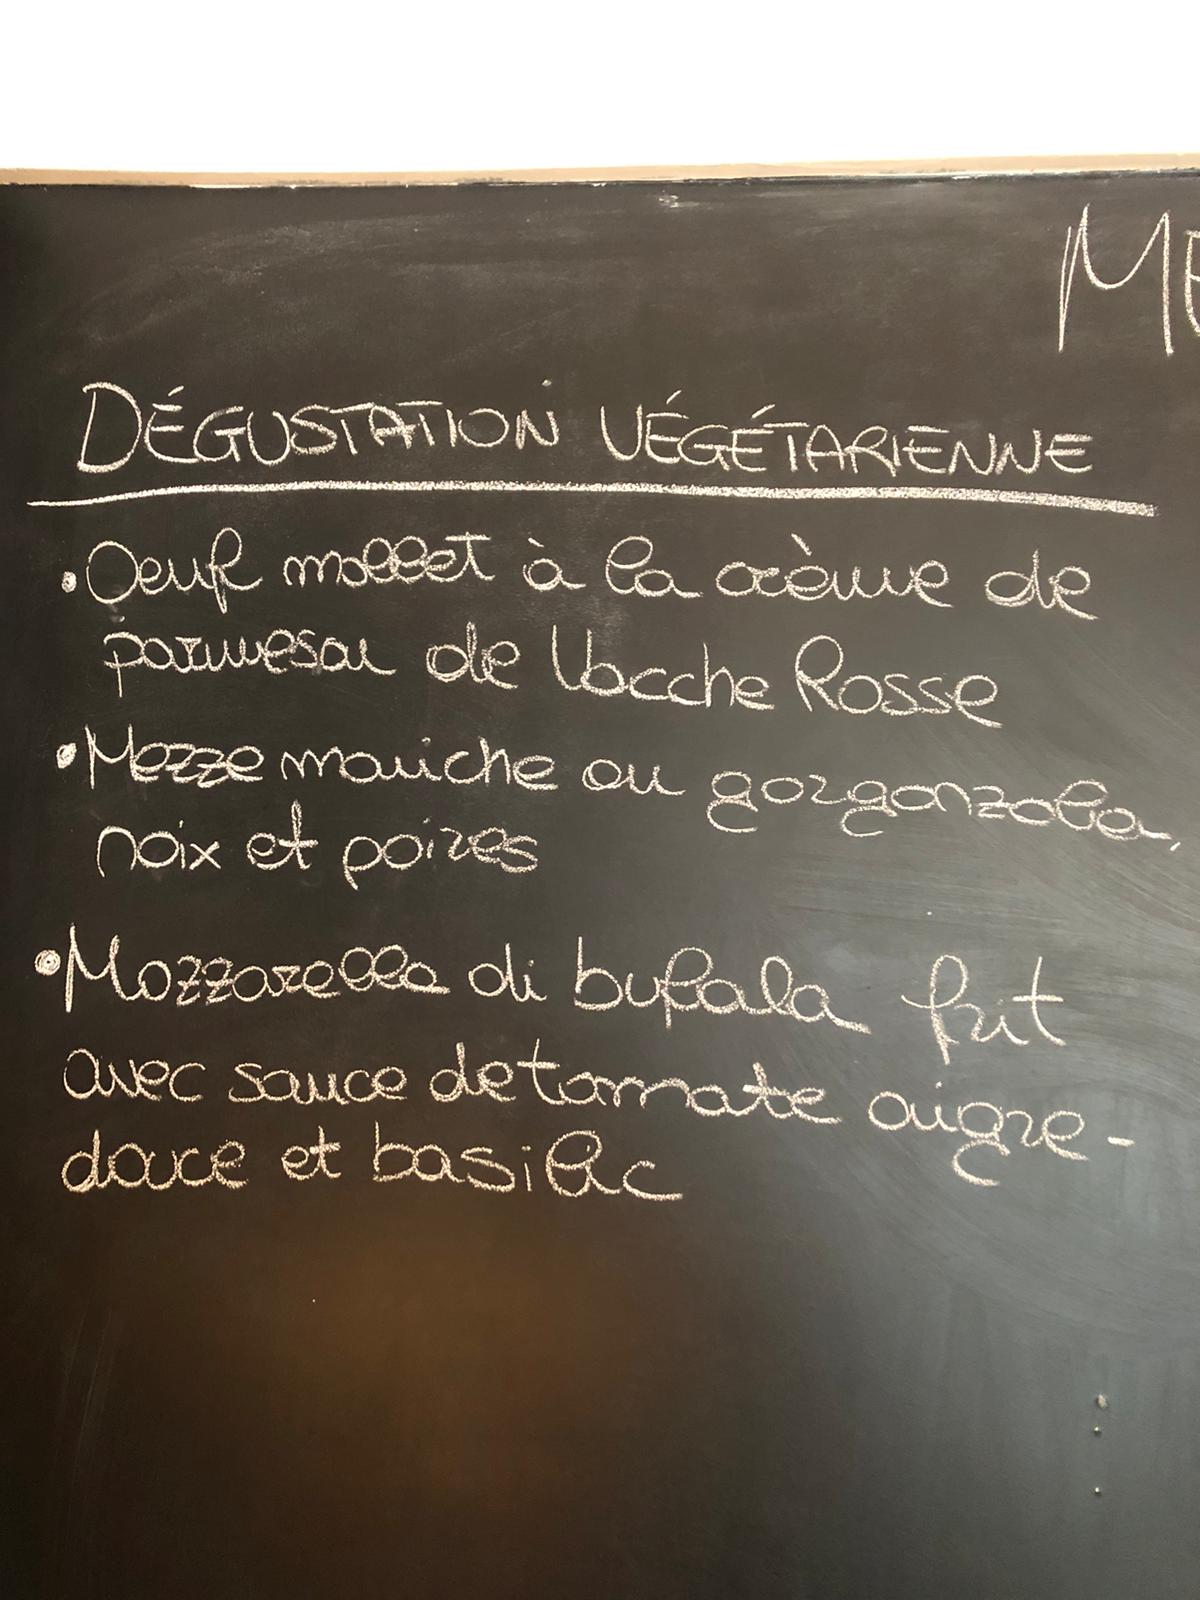 ME
DÉGUSTATION VÉGÉTARIENNE
• Oeuf mollet à la crème de
parmesan de Vacche Rosse
• Mezze maniche au gorgonzola,
noix et poires
• Mozzarella di bufala frit
avec sauce de tomate aigre-
douce et basilic